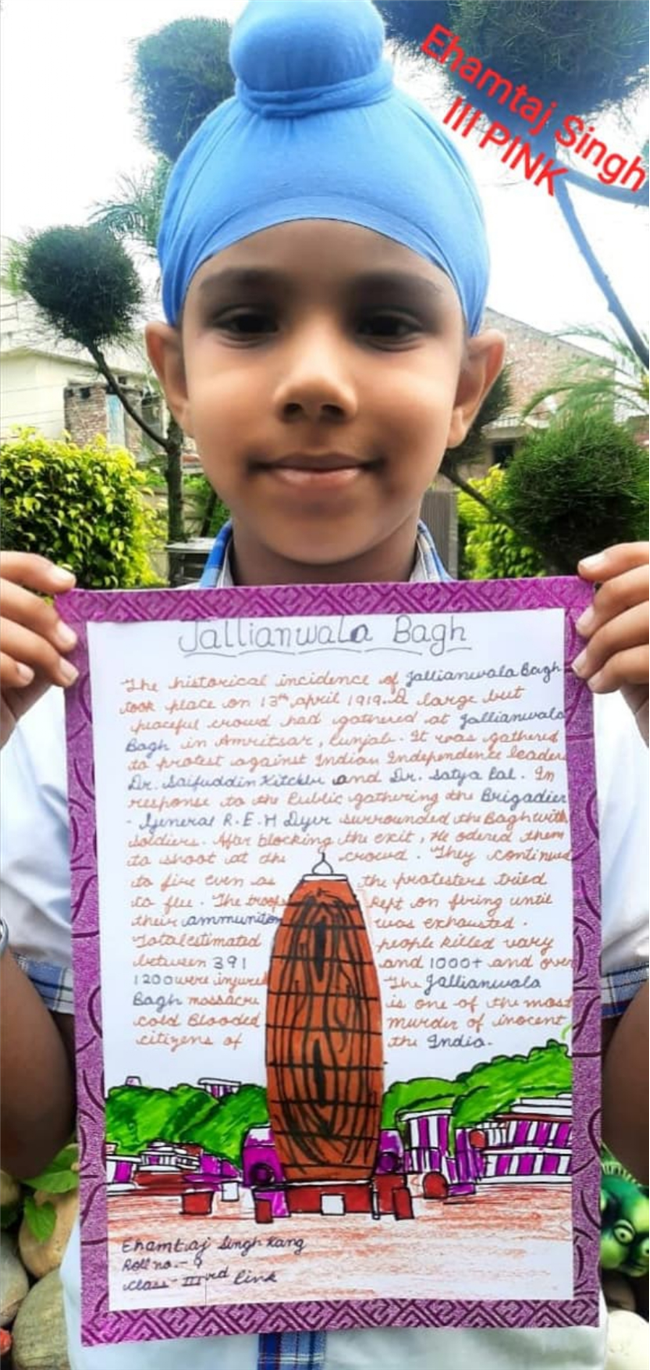 Ehamtaj Singh
III PINK
Jallianwala Bagh
The historical incidence of Jallianwala Bagh
took place on 13th, april 1919. A large but
peaceful crowd had gathered at Jallianwala
Bagh in Amritsar, Punjab. It was gathered
to protest against Indian Independence leader
Dr. Saifuddin Kitchlu and Dr. Satya Pal. In
response to the Public gathering the Brigadier
- General R.E.H Dyer surrounded the Bagh with
soldiers. After blocking the exit, He odered them
to shoot at the crowd. They continued
to fire even as the protesters tried
to flee. The troops kept on firing until
their ammunition was exhausted.
Total estimated people killed vary
between 391 and 1000+ and over
1200 were injured The Jallianwala
Bagh massacre is one of the most
cold Blooded murder of inocent
citizens of the India.
Ehamtaj Singh Kang
Roll no. - 9
Class - III rd Pink